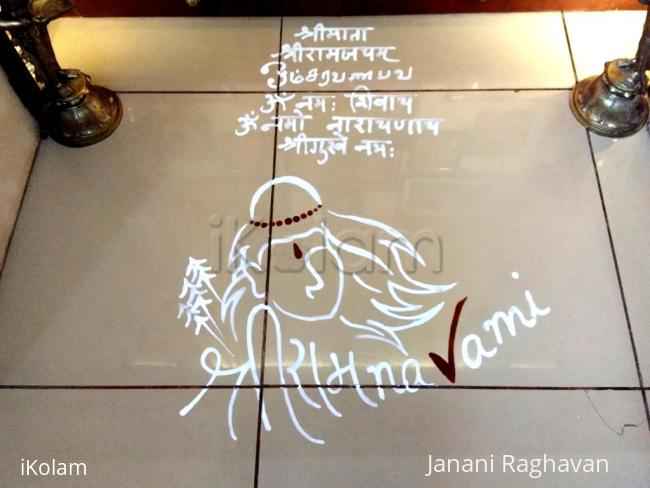 श्रीमाता
श्रीरामजयम्
ஓம்சரவணபவ
ॐ नमः शिवाय
ॐ नमो नारायणाय
श्रीगुरुवे नमः
iKolam
श्रीरामnavami
iKolam
Janani Raghavan